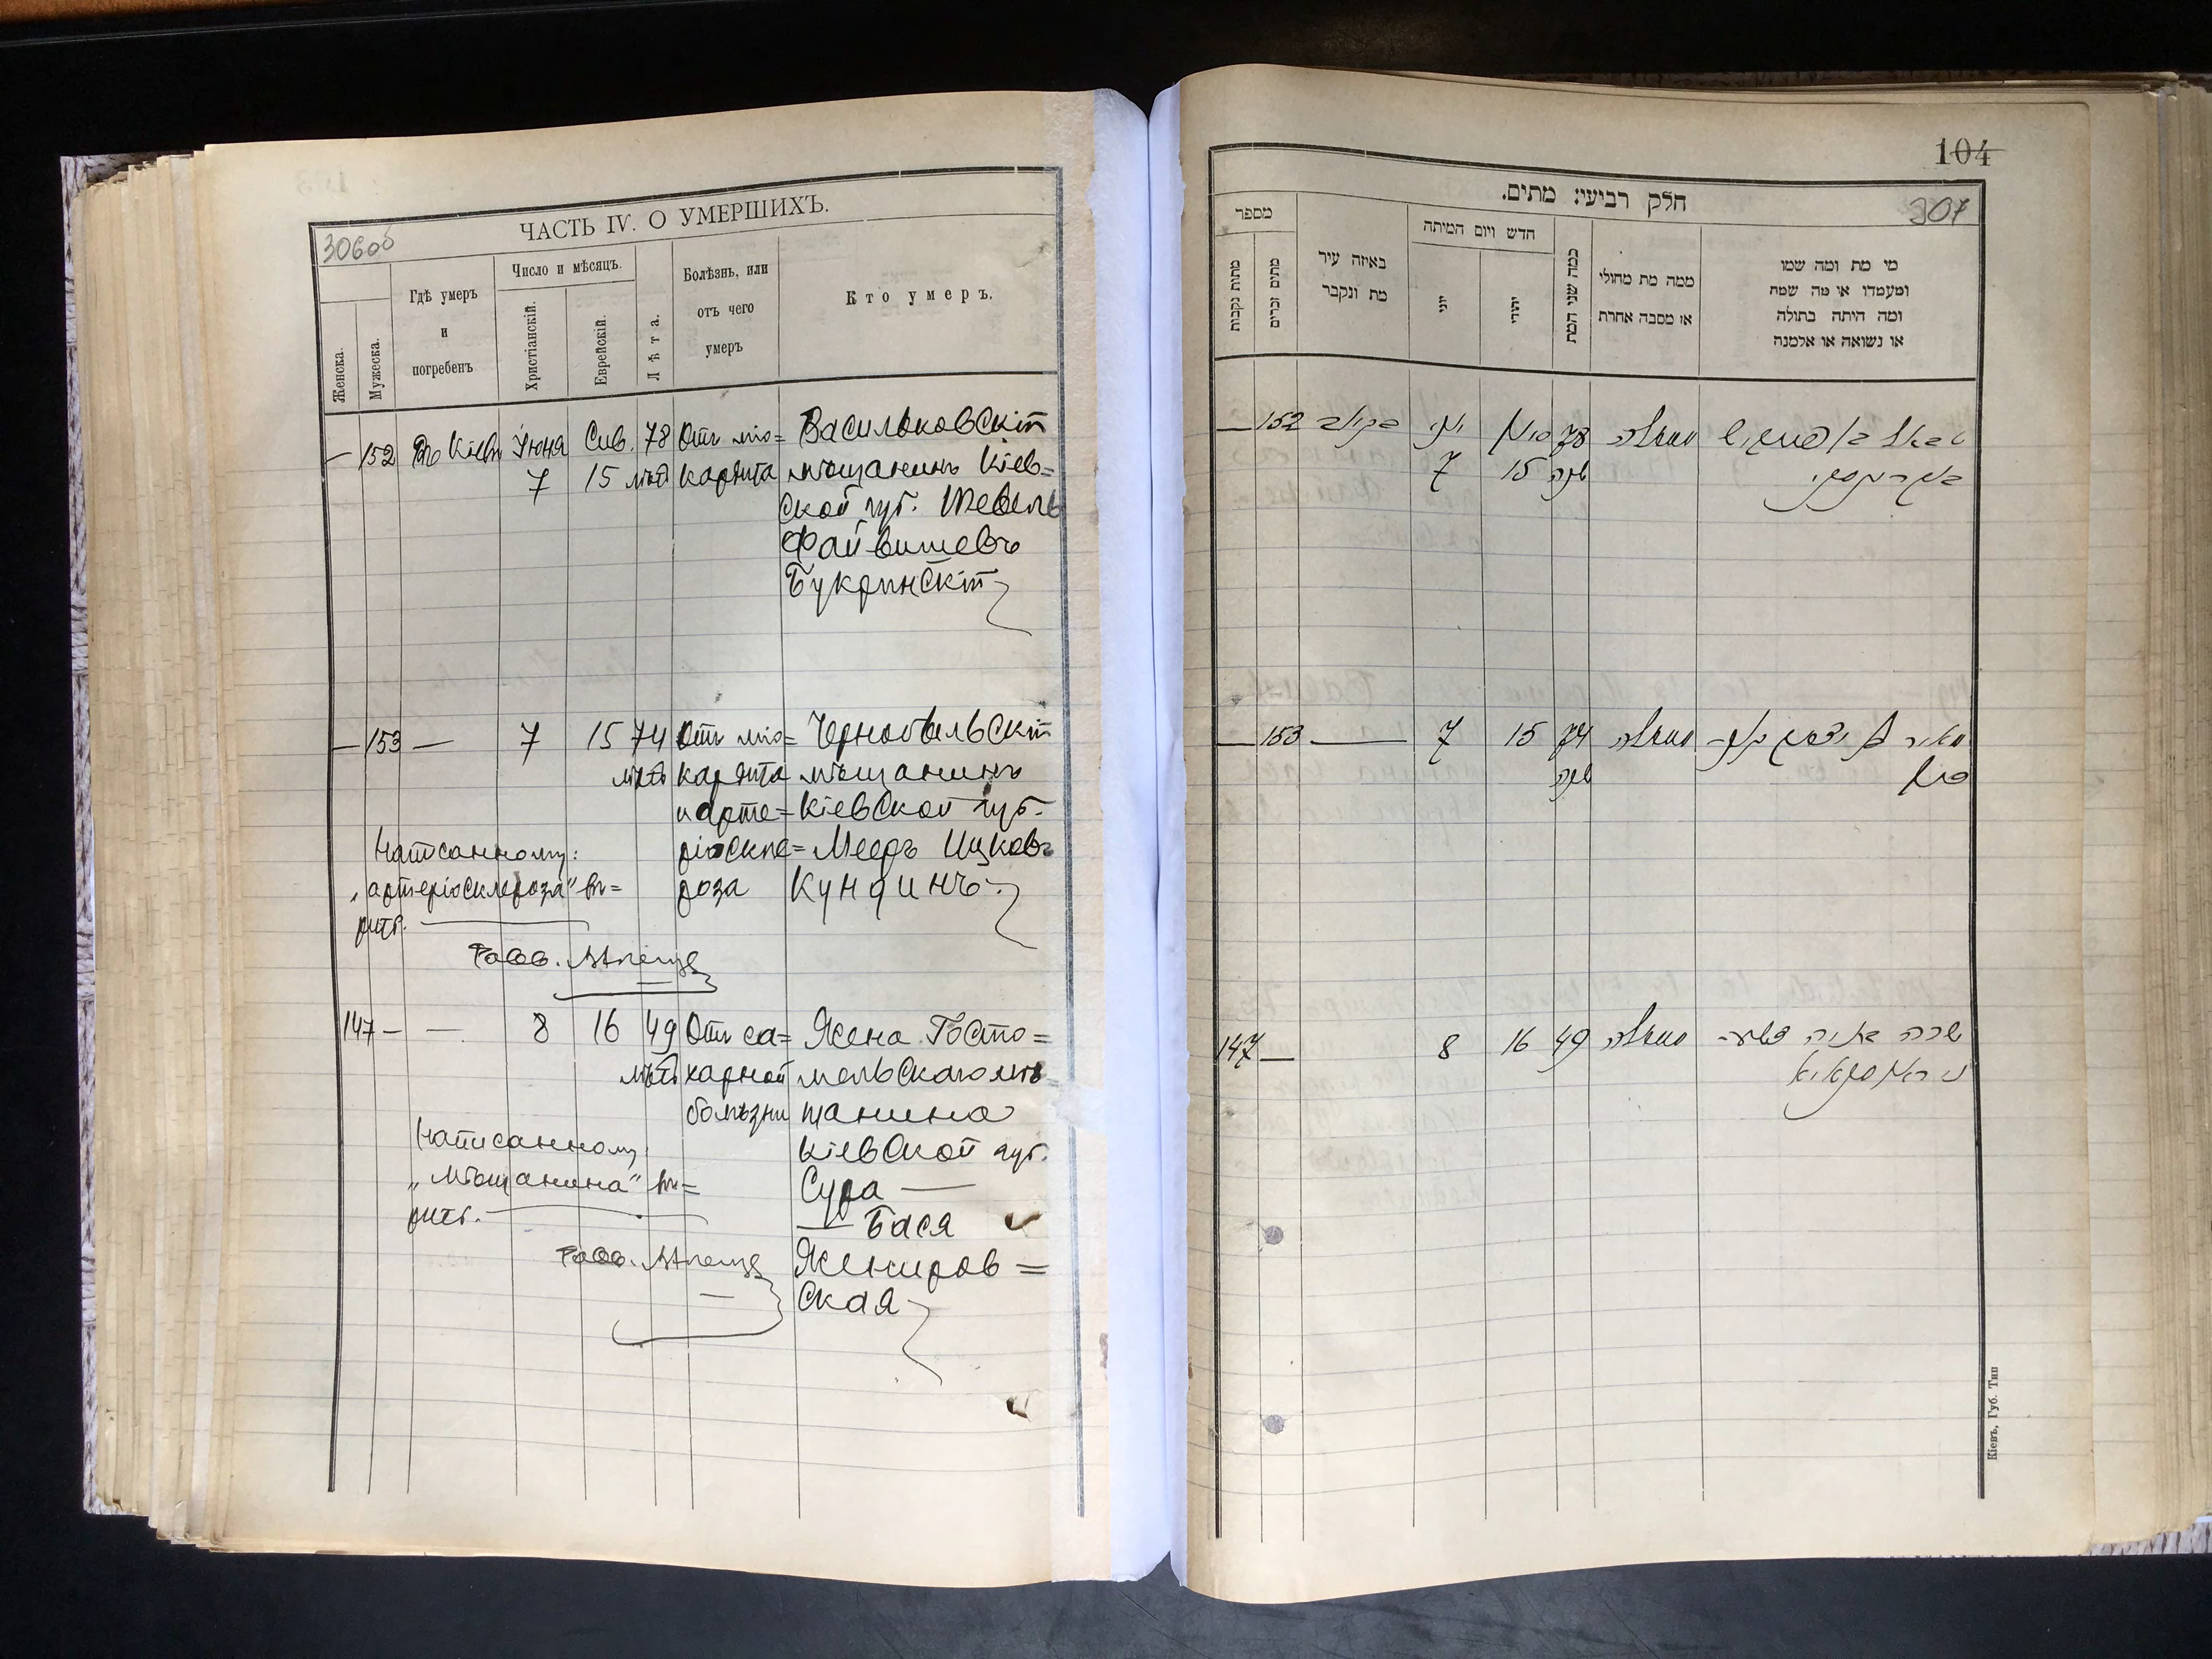 306об
ЧАСТЬ IV. О УМЕРШИХЪ.
Женска.
Мужеска.
Гдѣ умеръ
и
погребенъ
Число и мѣсяцъ.
Христіанскій.
Еврейскій.
Лѣта.
Болѣзнь, или
отъ чего
умеръ
Кто умеръ.
— 152 Въ Кіевѣ Іюня Сив. 78 Отъ міо= Васильковскій
7 15 лѣтъ кардита мѣщанинъ Кіев=
ской губ. Шевель
Файвишевъ
Букринскій
— 153 — 7 15 74 Отъ міо= Чернобыльскій
лѣтъ кардита мѣщанинъ
и арте= Кіевской губ.
ріоскле= Мееръ Ицковъ
роза Кундинъ.
Написанному:
„артеріосклероза" вѣ=
рить.
Равв.
147 — — 8 16 49 Отъ са= Жена Госто=
лѣтъ харной мельскаго мѣ=
болѣзни щанина
Кіевской губ.
Сура —
— Бася
Жениров=
ская
Написанному
„мѣщанина" вѣ=
рить.
Равв.
104
307
חלק רביעי: מתים.
מספר
מתות נקבות
מתים זכרים
באיזה עיר
מת ונקבר
חדש ויום המיתה
יוני
יהודי
כמה שני המת
ממה מת מחולי
או מסבה אחרת
מי מת ומה שמו
ומעמדו או מה שמת
ומה היתה בתולה
או נשואה או אלמנה
— 152 בקיוב יוני סיון 78
7 15 שנה
— 153 — 7 15 74
שנה
147 — 8 16 49
Кіевъ, Губ. Тип